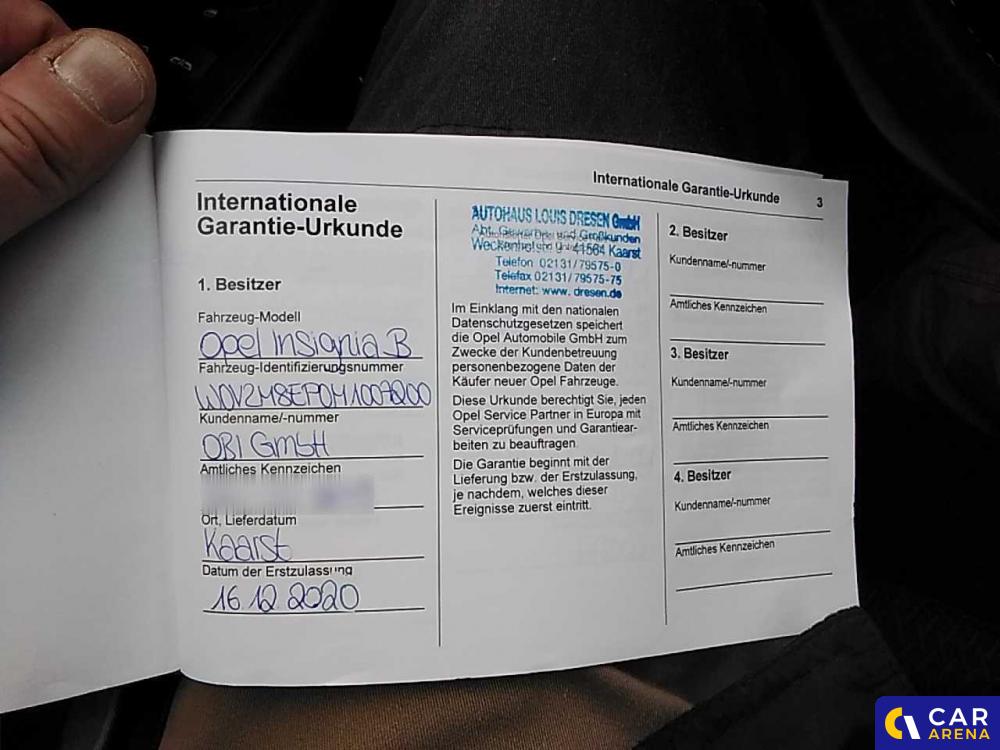 Internationale Garantie-Urkunde 3
Internationale
Garantie-Urkunde
1. Besitzer
Fahrzeug-Modell
Opel Insignia B
Fahrzeug-Identifizierungsnummer
W0VZM8EP0M1007200
Kundenname/-nummer
OBI GmbH
Amtliches Kennzeichen
Ort, Lieferdatum
Kaarst
Datum der Erstzulassung
16.12.2020
AUTOHAUS LOUIS DRESEN GmbH
Abt. Gewerbe und Großkunden
41564 Kaarst
Telefon 02131/79575-0
Telefax 02131/79575-75
Internet: www.dresen.de
Im Einklang mit den nationalen
Datenschutzgesetzen speichert
die Opel Automobile GmbH zum
Zwecke der Kundenbetreuung
personenbezogene Daten der
Käufer neuer Opel Fahrzeuge.
Diese Urkunde berechtigt Sie, jeden
Opel Service Partner in Europa mit
Serviceprüfungen und Garantiear-
beiten zu beauftragen.
Die Garantie beginnt mit der
Lieferung bzw. der Erstzulassung,
je nachdem, welches dieser
Ereignisse zuerst eintritt.
2. Besitzer
Kundenname/-nummer
Amtliches Kennzeichen
3. Besitzer
Kundenname/-nummer
Amtliches Kennzeichen
4. Besitzer
Kundenname/-nummer
Amtliches Kennzeichen
CAR
ARENA